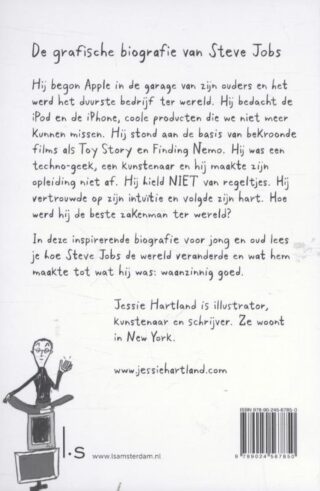 De grafische biografie van Steve Jobs
Hij begon Apple in de garage van zijn ouders en het
werd het duurste bedrijf ter wereld. Hij bedacht de
iPod en de iPhone, coole producten die we niet meer
kunnen missen. Hij stond aan de basis van bekroonde
films als Toy Story en Finding Nemo. Hij was een
techno-geek, een kunstenaar en hij maakte zijn
opleiding niet af. Hij hield NIET van regeltjes. Hij
vertrouwde op zijn intuïtie en volgde zijn hart. Hoe
werd hij de beste zakenman ter wereld?
In deze inspirerende biografie voor jong en oud lees
je hoe Steve Jobs de wereld veranderde en wat hem
maakte tot wat hij was: waanzinnig goed.
Jessie Hartland is illustrator,
kunstenaar en schrijver. Ze woont
in New York.
www.jessiehartland.com
ISBN 978-90-245-6785-0
l.s
www.lsamsterdam.nl
9 789024 567850